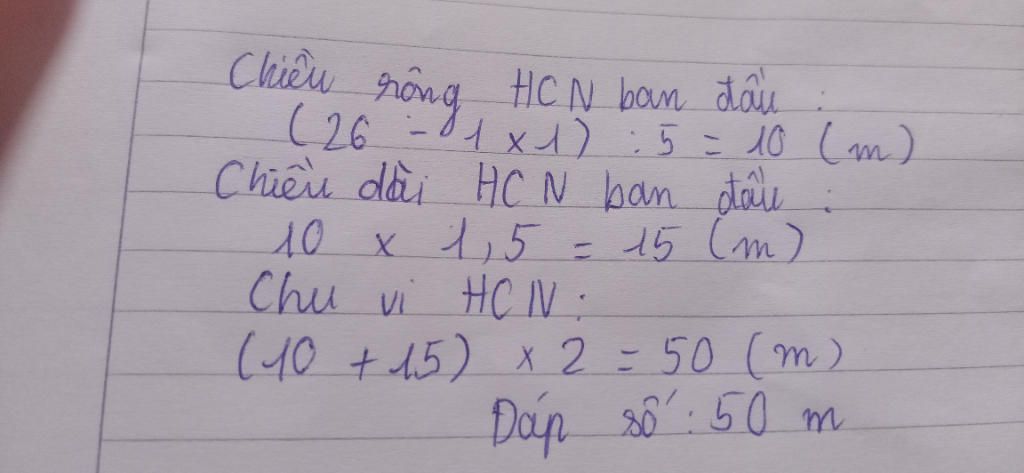 Chiều rộng HCN ban đầu :
(26 - 1 x 1) : 5 = 10 (m)
Chiều dài HCN ban đầu :
10 x 1,5 = 15 (m)
Chu vi HCN :
(10 + 15) x 2 = 50 (m)
Đáp số : 50 m